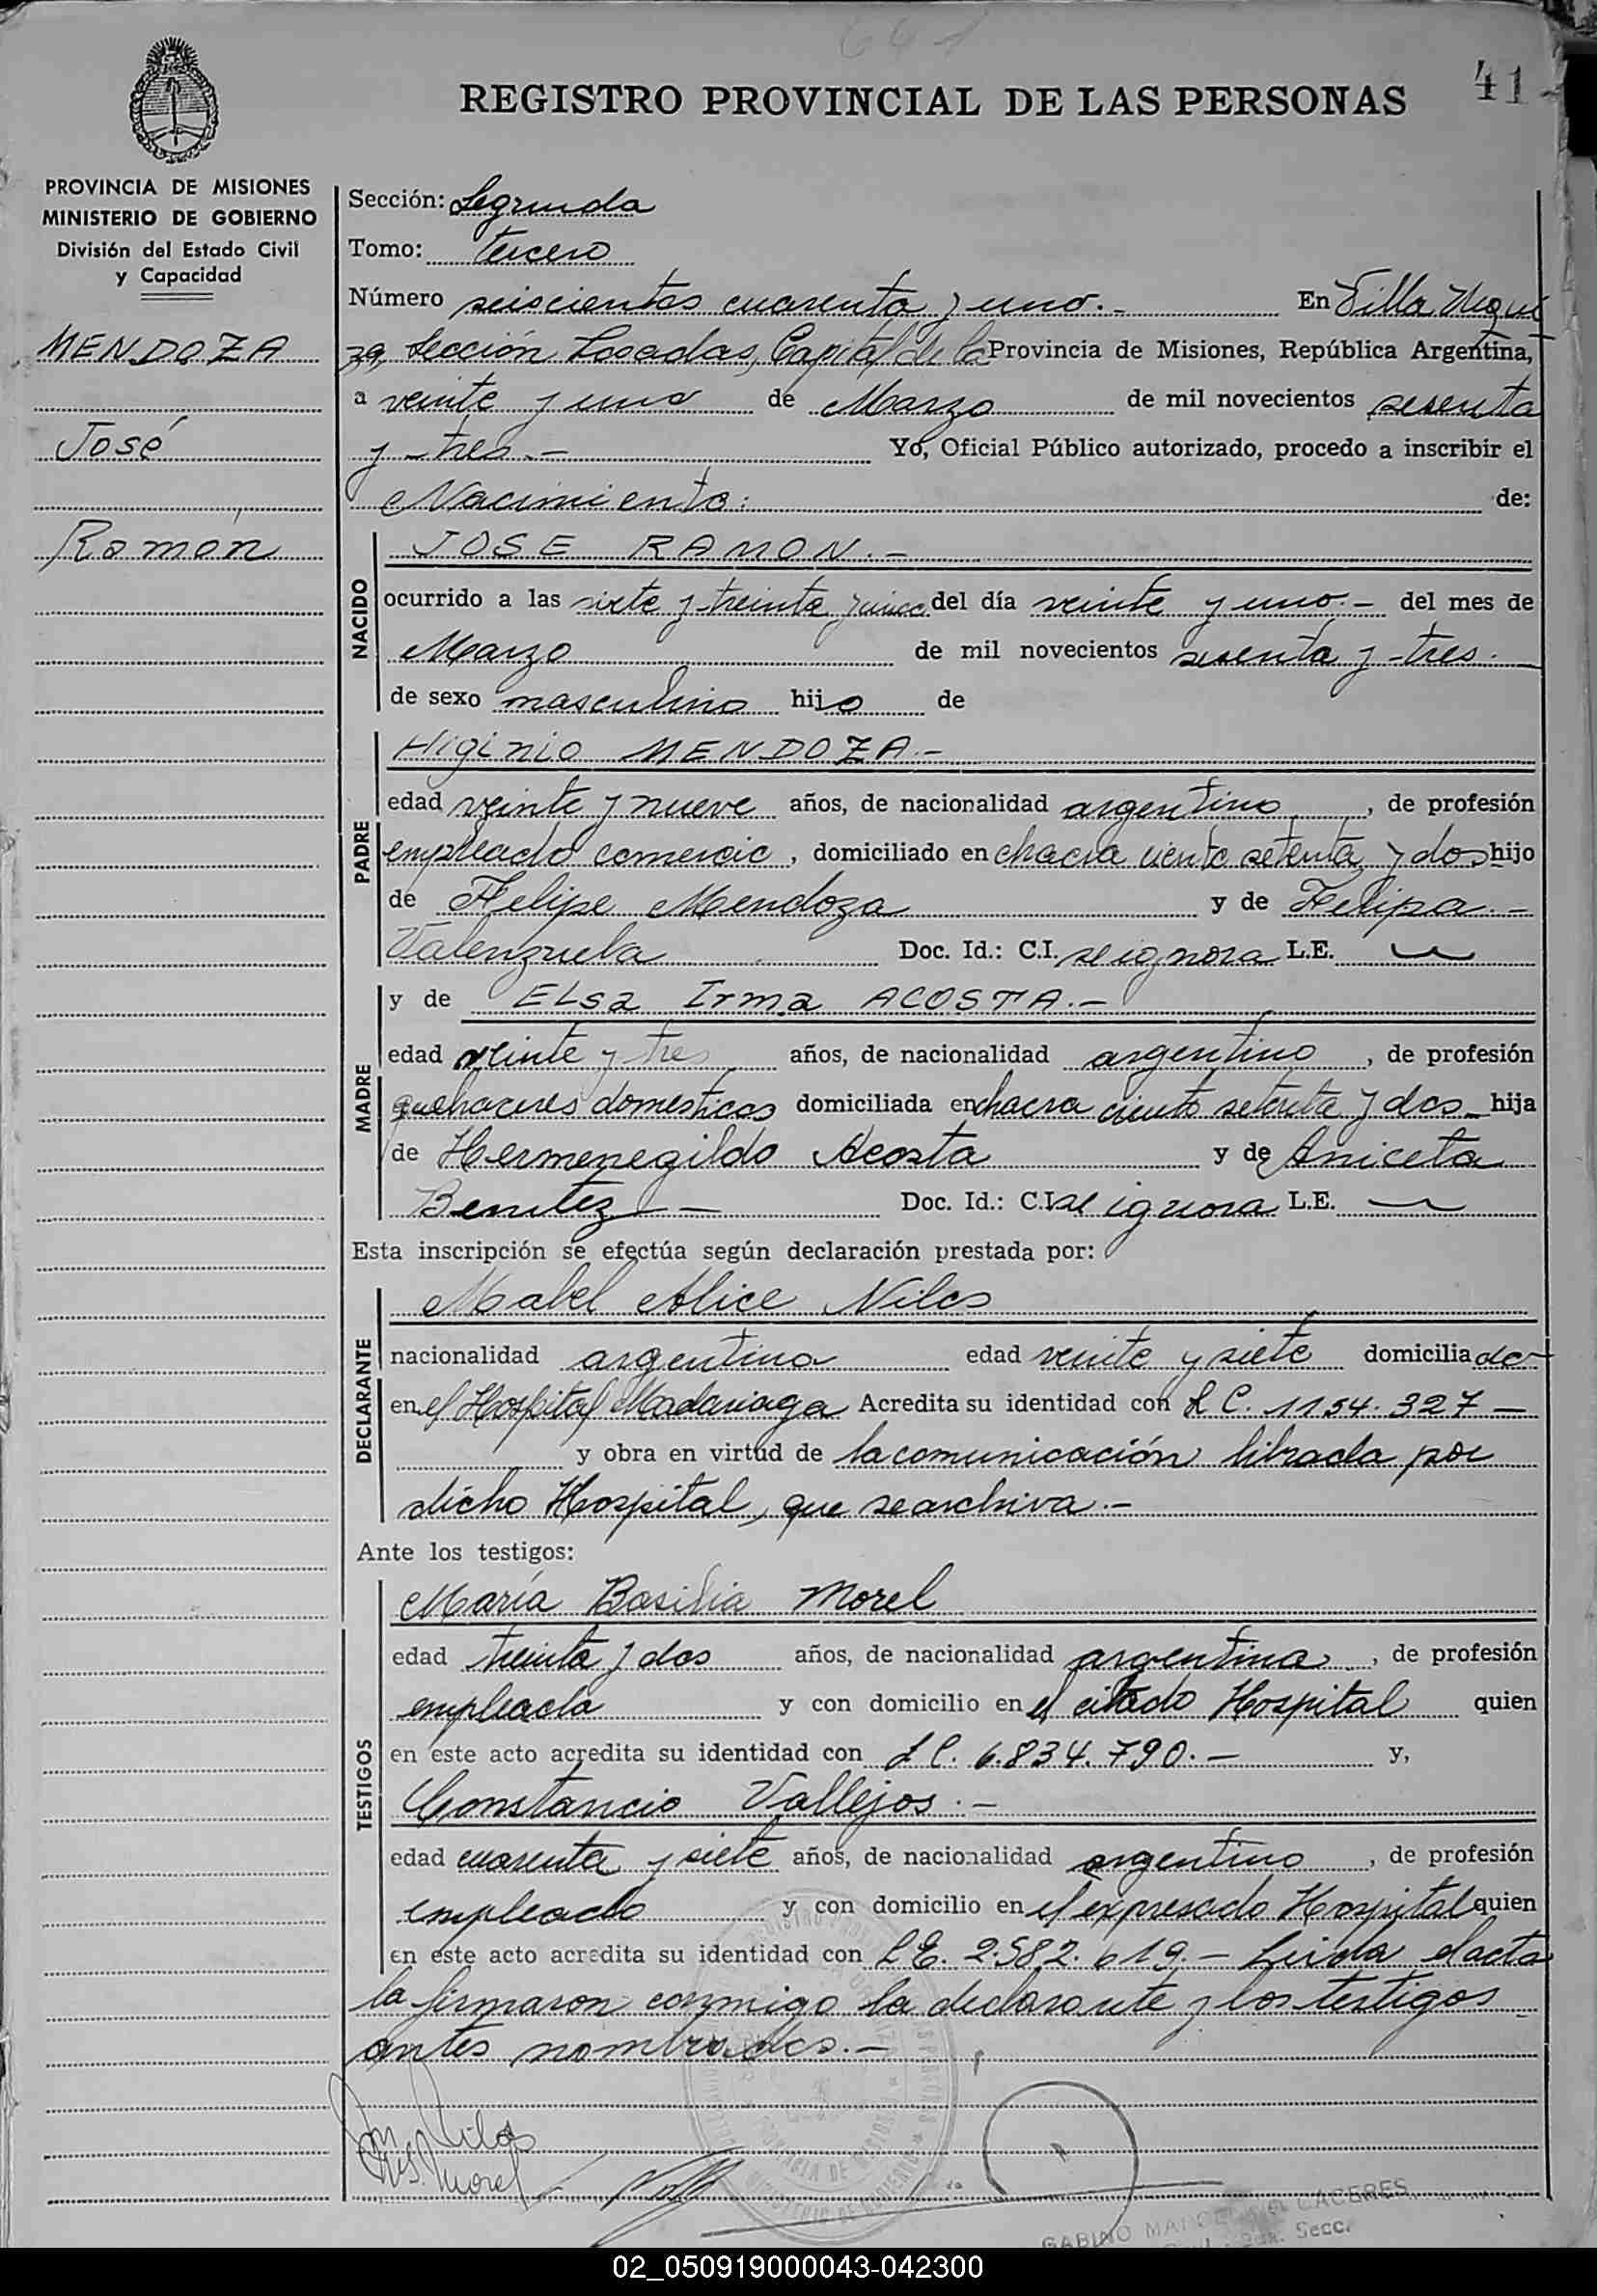 641
41
REGISTRO PROVINCIAL DE LAS PERSONAS
PROVINCIA DE MISIONES
MINISTERIO DE GOBIERNO
División del Estado Civil
y Capacidad
MENDOZA
José
Ramón
Sección: Segunda
Tomo: tercero
Número seiscientos cuarenta y uno.- En Villa Urqui
za, Sección Posadas, Capital de la Provincia de Misiones, República Argentina,
a veinte y uno de Marzo de mil novecientos sesenta
y tres.- Yo, Oficial Público autorizado, procedo a inscribir el
Nacimiento: de:
NACIDO
JOSE RAMON.-
ocurrido a las siete y treinta y cinco del día veinte y uno.- del mes de
Marzo de mil novecientos sesenta y tres.
de sexo masculino hijo de
PADRE
Higinio MENDOZA.-
edad veinte y nueve años, de nacionalidad argentino, de profesión
empleado comercio, domiciliado en chacra ciento setenta y dos hijo
de Felipe Mendoza y de Felipa.-
Valenzuela Doc. Id.: C.I. se ignora L.E.
MADRE
y de Elsa Irma ACOSTA.-
edad veinte y tres años, de nacionalidad argentino, de profesión
quehaceres domesticos domiciliada en chacra ciento setenta y dos hija
de Hermenegildo Acosta y de Aniceta
Benitez - Doc. Id.: C.I. se ignora L.E.
Esta inscripción se efectúa según declaración prestada por:
DECLARANTE
Mabel Alice Nilos
nacionalidad argentina edad veinte y siete domiciliada
en el Hospital Madariaga Acredita su identidad con L C. 1154.327 -
y obra en virtud de la comunicación librada por
dicho Hospital, que se archiva.-
Ante los testigos:
TESTIGOS
María Basilia Morel
edad treinta y dos años, de nacionalidad argentina, de profesión
empleada y con domicilio en el citado Hospital quien
en este acto acredita su identidad con L C. 6.834.790.- y,
Constancio Vallejos.-
edad cuarenta y siete años, de nacionalidad argentino, de profesión
empleado y con domicilio en el expresado Hospital quien
en este acto acredita su identidad con L E. 2.582.619.- Leida el acta
la firmaron conmigo la declarante y los testigos
antes nombrados.-
Morel
GABINO CACERES
Secc.
02_050919000043-042300